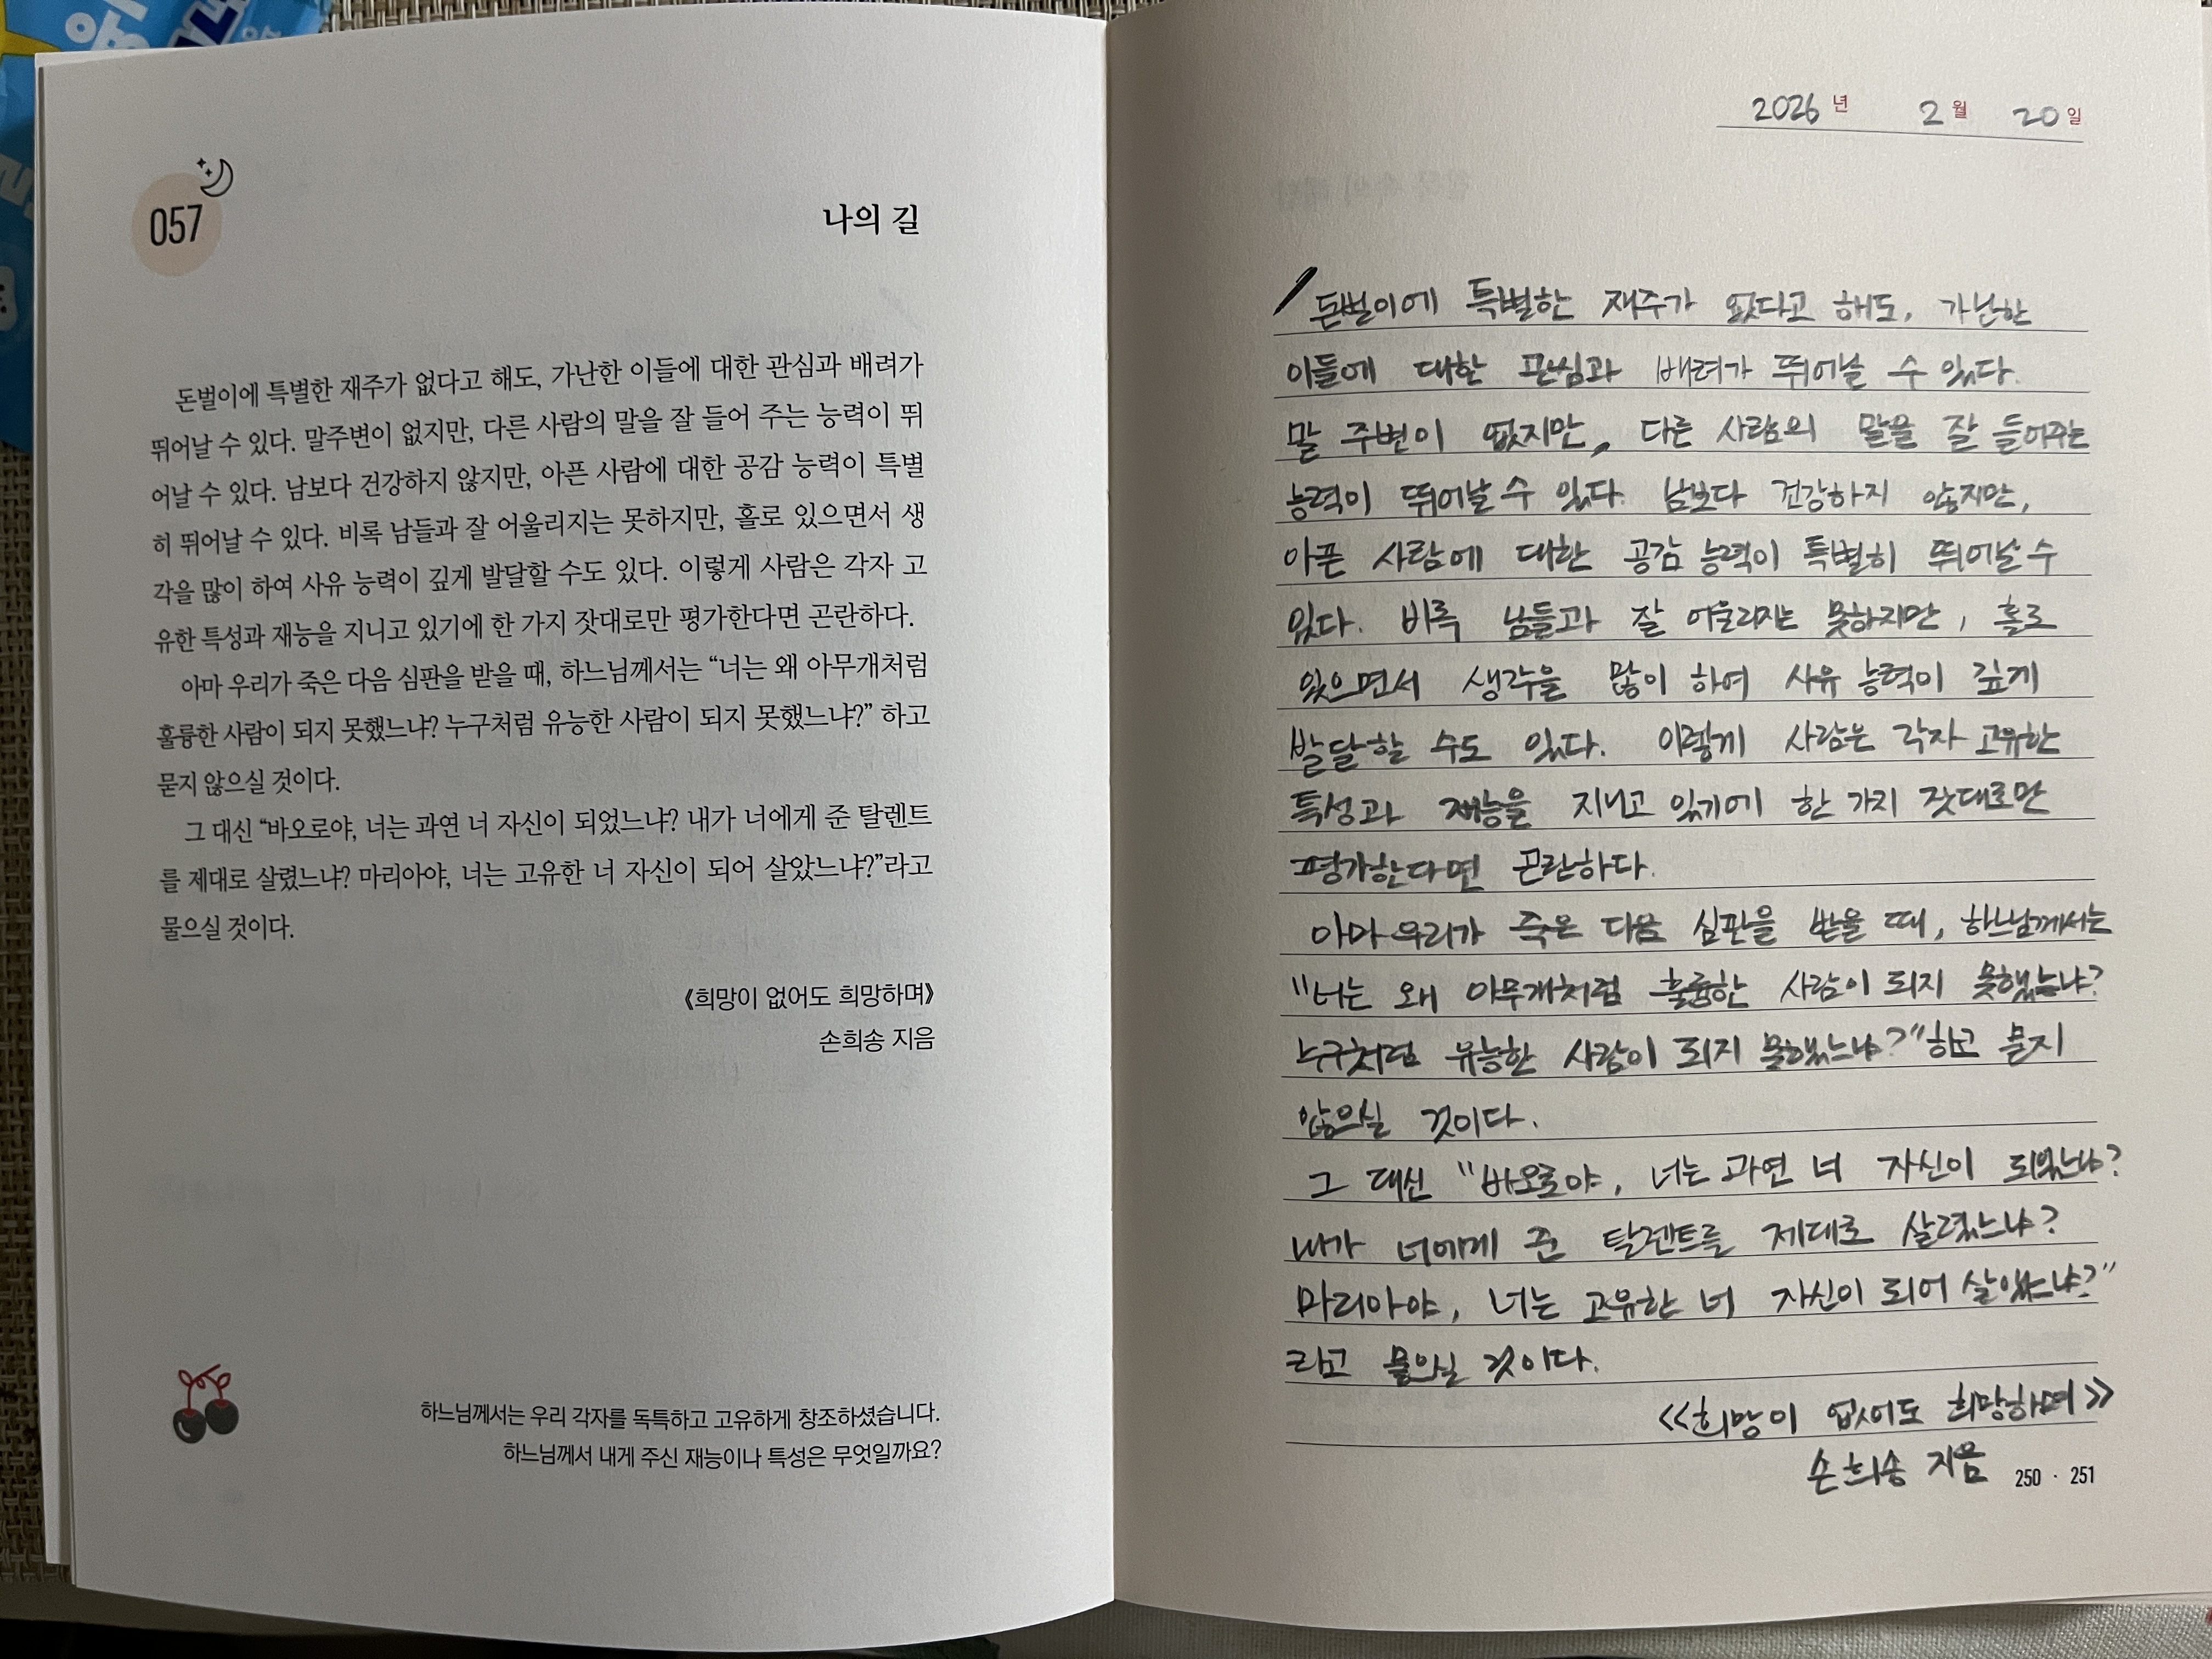 057
나의 길
돈벌이에 특별한 재주가 없다고 해도, 가난한 이들에 대한 관심과 배려가
뛰어날 수 있다. 말주변이 없지만, 다른 사람의 말을 잘 들어 주는 능력이 뛰
어날 수 있다. 남보다 건강하지 않지만, 아픈 사람에 대한 공감 능력이 특별
히 뛰어날 수 있다. 비록 남들과 잘 어울리지는 못하지만, 홀로 있으면서 생
각을 많이 하여 사유 능력이 깊게 발달할 수도 있다. 이렇게 사람은 각자 고
유한 특성과 재능을 지니고 있기에 한 가지 잣대로만 평가한다면 곤란하다.
아마 우리가 죽은 다음 심판을 받을 때, 하느님께서는 “너는 왜 아무개처럼
훌륭한 사람이 되지 못했느냐? 누구처럼 유능한 사람이 되지 못했느냐?” 하고
묻지 않으실 것이다.
그 대신 “바오로야, 너는 과연 너 자신이 되었느냐? 내가 너에게 준 탈렌트
를 제대로 살렸느냐? 마리아야, 너는 고유한 너 자신이 되어 살았느냐?”라고
물으실 것이다.
《희망이 없어도 희망하며》
손희송 지음
하느님께서는 우리 각자를 독특하고 고유하게 창조하셨습니다.
하느님께서 내게 주신 재능이나 특성은 무엇일까요?
2026년 2월 20일
돈벌이에 특별한 재주가 없다고 해도, 가난한
이들에 대한 관심과 배려가 뛰어날 수 있다.
말 주변이 없지만, 다른 사람의 말을 잘 들어주는
능력이 뛰어날 수 있다. 남보다 건강하지 않지만,
아픈 사람에 대한 공감 능력이 특별히 뛰어날 수
있다. 비록 남들과 잘 어울리지는 못하지만, 홀로
있으면서 생각을 많이 하여 사유 능력이 깊게
발달할 수도 있다. 이렇게 사람은 각자 고유한
특성과 재능을 지니고 있기에 한 가지 잣대로만
평가한다면 곤란하다.
아마 우리가 죽은 다음 심판을 받을 때, 하느님께서는
"너는 왜 아무개처럼 훌륭한 사람이 되지 못했느냐?
누구처럼 유능한 사람이 되지 못했느냐?" 하고 묻지
않으실 것이다.
그 대신 "바오로야, 너는 과연 너 자신이 되었느냐?
내가 너에게 준 탈렌트를 제대로 살렸느냐?
마리아야, 너는 고유한 너 자신이 되어 살았느냐?"
라고 물으실 것이다.
<<희망이 없어도 희망하며>>
손희송 지음
250 · 251